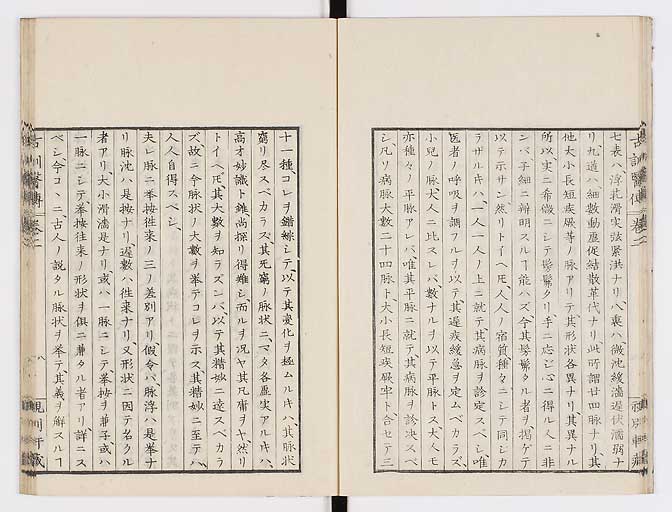 七表ハ浮芤滑実弦緊洪ナリ八裏ハ微沈緩濇遅伏濡弱ナ
リ九道ハ細数動虚促結散革代ナリ此所謂廿四脉ナリ其
他大小長短疾厥等ノ脉アリテ其形状各異ナリ其異ナル
所以実ニ希微ニシテ髣髴タリ手ニ応ジ心ニ得ル人ニ非
ンバ子細ニ辨明スルヿ能ハズ今其髣髴タル者ヲ掲ゲテ
以テ示サン然リトイヘ𪜈人人ノ宿質種々ニシテ同シカ
ラザル𪜈ハ一人一人ノ上ニ就テ其病脉ヲ診定スベシ唯
医者ノ呼吸ヲ調フルヲ以テ其遅疾緩急ヲ定ムベカラズ
小児ノ脉大人ニ比スレバ数ナルヲ以テ平脉トス大人モ
亦種々ノ平脉アレバ唯其平脉ニ就テ其病脉ヲ診決スベ
シ凡ソ病脉大数二十四脉ト大小長短疾厥牢ト合セテ三
十一種コレヲ錯綜シテ以テ其変化ヲ極ムルキハ其脉状
窮リ尽スベカラズ其死窮ノ脉状ニマタ各虚実アルキハ
高才妙識ト雖尚探リ得難シ而ルヲ况ヤ其凡庸ヲヤ然リ
トイヘ𪜈其大数ヲ知ラズンバ以テ其精妙ニ造スベカラ
ズ故ニ今脉状ノ大数ヲ挙テコレヲ示ス其精妙ニ至テハ
人人自得スベシ
夫レ脉ニ挙按往来ノ三ノ差別アリ假令ハ脉浮ハ是挙ナ
リ脉沈ハ是按ナリ遅数ハ往来ナリ又形状ニ因テ名クル
者アリ大小滑濇是ナリ或ハ一脉ニシテ挙按ヲ兼子或ハ
一脉ニシテ挙按往来ノ形状ヲ俱ニ兼タル者アリ詳ニス
ベシ今コヽニ古人ノ説タル脉状ヲ挙テ其義ヲ解スルヿ